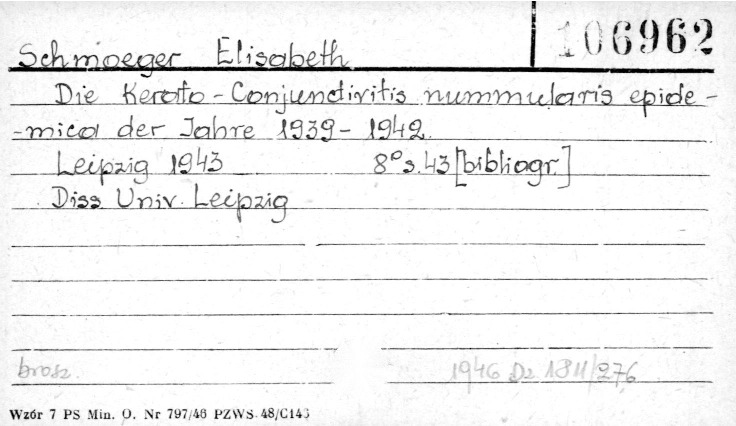 106962
Schmoeger Elisabeth
Die Kerato-Conjunctivitis nummularis epide-
-mica der Jahre 1939-1942.
Leipzig 1943 8° s. 43 [bibliogr.]
Diss. Univ. Leipzig
brosz. 1946 Dz 1811/276
Wzór 7 PS Min. O. Nr 797/46 PZWS 48/C143